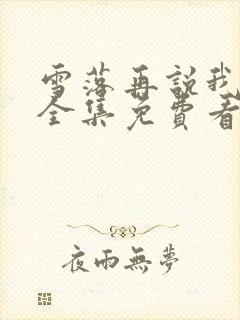 雪落再說我
全集免費看
夜雨無夢